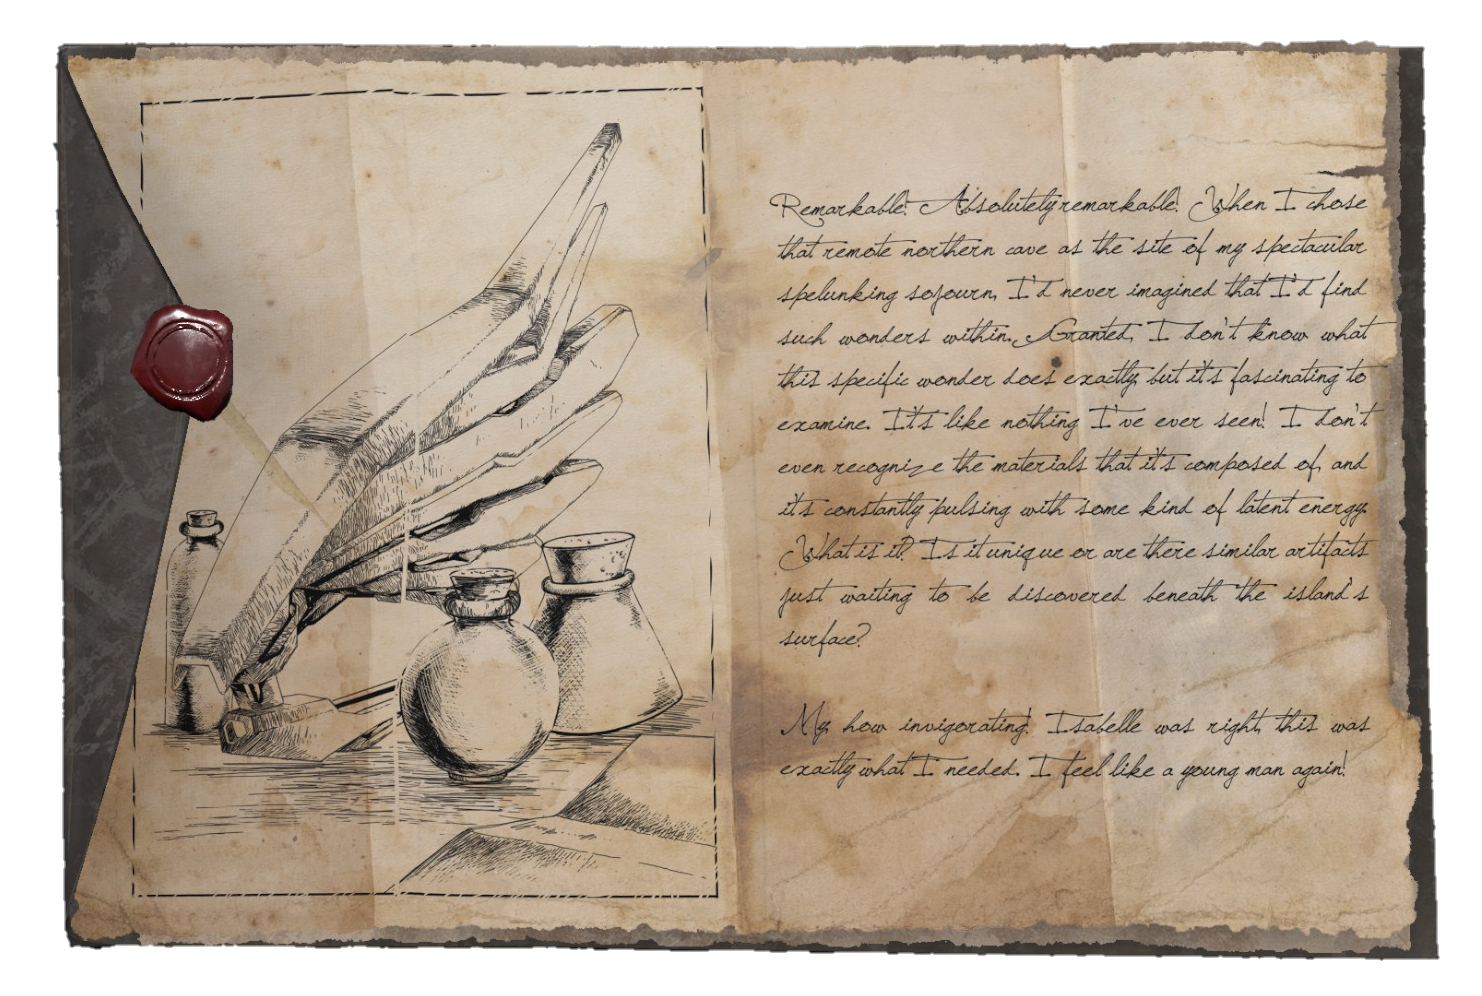 Remarkable! Absolutely remarkable! When I chose
that remote northern cave as the site of my spectacular
spelunking sojourn, I'd never imagined that I'd find
such wonders within. Granted, I don't know what
this specific wonder does exactly, but it's fascinating to
examine. It's like nothing I've ever seen! I don't
even recognize the materials that it's composed of, and
it's constantly pulsing with some kind of latent energy.
What is it? Is it unique or are there similar artifacts
just waiting to be discovered beneath the island's
surface?
My, how invigorating! Isabelle was right, this was
exactly what I needed. I feel like a young man again!